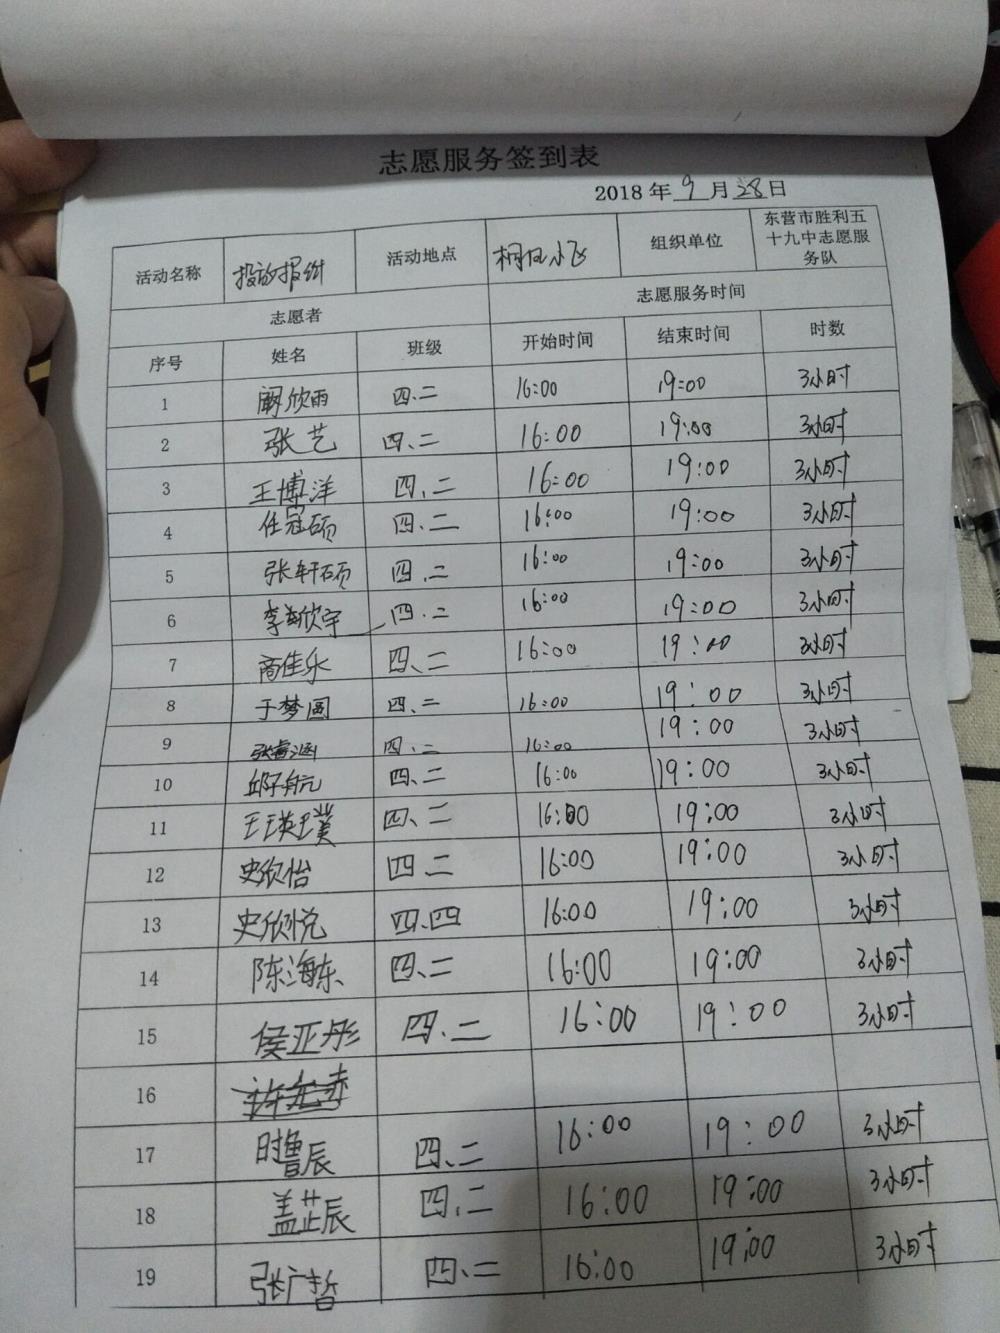 志愿服务签到表
2018 年 9 月 28 日
活动名称 投放报纸 活动地点 组织单位 东营市胜利五十九中志愿服务队
志愿者 志愿服务时间
序号 姓名 班级 开始时间 结束时间 时数
1 阚欣雨 四、二 16:00 19:00 3小时
2 张艺 四、二 16:00 19:00 3小时
3 王博洋 四、二 16:00 19:00 3小时
4 任冠硕 四、二 16:00 19:00 3小时
5 张轩硕 四、二 16:00 19:00 3小时
6 四、二 16:00 19:00 3小时
7 商佳乐 四、二 16:00 19:00 3小时
8 于梦圆 四、二 16:00 19:00 3小时
9 张睿涵 四、二 16:00 19:00 3小时
10 四、二 16:00 19:00 3小时
11 王瑛璞 四、二 16:00 19:00 3小时
12 史欣怡 四、二 16:00 19:00 3小时
13 史欣悦 四、四 16:00 19:00 3小时
14 陈海东 四、二 16:00 19:00 3小时
15 侯亚彤 四、二 16:00 19:00 3小时
16
17 时鲁辰 四、二 16:00 19:00 3小时
18 盖芷辰 四、二 16:00 19:00 3小时
19 张广哲 四、二 16:00 19:00 3小时